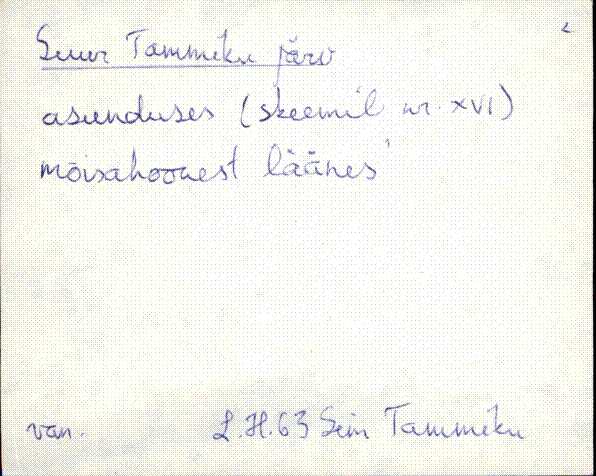 Suur Tammiku järv
asunduses (skeemil nr. XVI)
mõisahoonest läänes
van. L.H. 63 Sim Tammiku